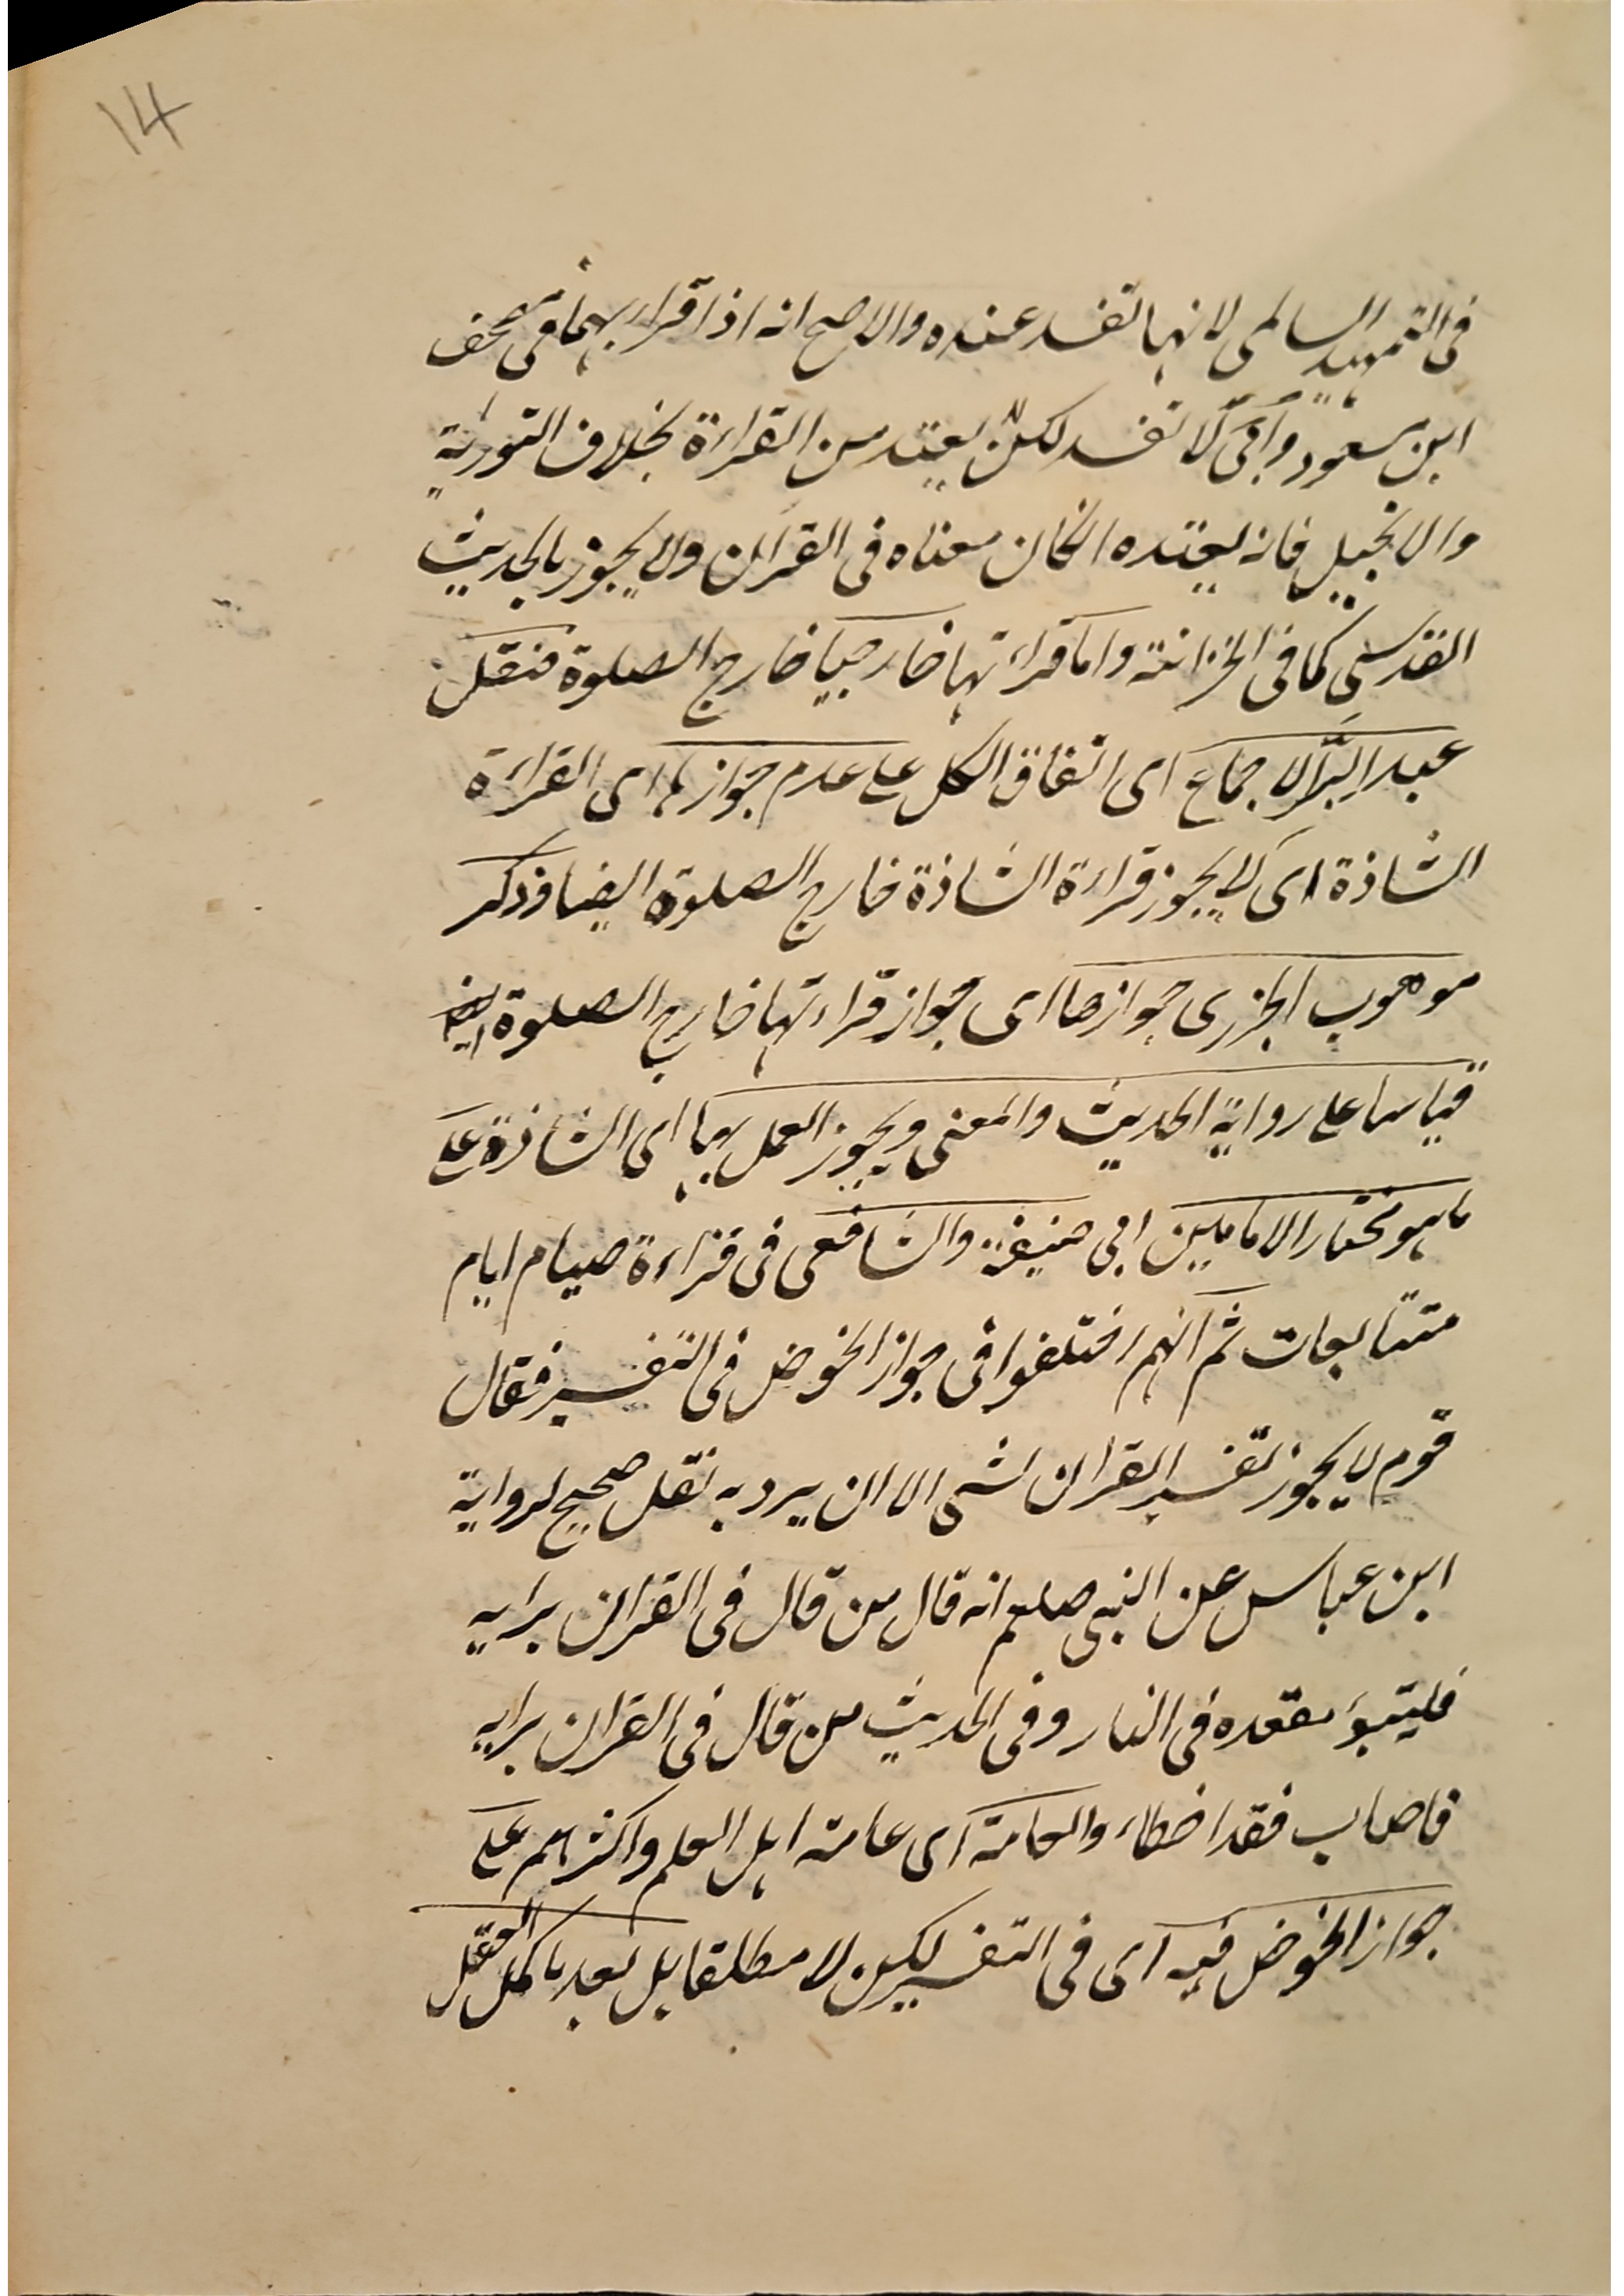 14
فى التمهيد السالمى لانها تفسد عنده والاصح انه اذا قراء بهما فى مصحف
ابن مسعود وأبى لا تفسد لكن لا يعتد من القراءة بخلاف التورية
والانجيل فانه يعتده انكان معناه فى القران ولا يجوز بالحديث
القدسى كما فى الخزانة واما قراءتها خارجيا خارج الصلوة فنقل
عبد البر الاجماع اى اتفاق الكل على عدم جوازها اى القراءة
الشاذة اى لا يجوز قراءة الشاذة خارج الصلوة ايضا وذكر
موهوب الجزرى جوازها اى جواز قراءتها خارج الصلوة ايضا
قياسا على رواية الحديث والمعنى ويجوز العمل بها اى الشاذة على
ما هو مختار الامامين ابى حنيفة والشافعى فى قراءة صيام ايام
متتابعات ثم انهم اختلفوا فى جواز الخوض فى التفسير فقال
قوم لا يجوز تفسير القران لشى الا ان يرد به نقل صحيح لرواية
ابن عباس عن النبى صلعم انه قال من قال فى القران برايه
فليتبؤ مقعده فى النار وفى الحديث من قال فى القران برايه
فاصاب فقد اخطاء والعامة اى عامة اهل العلم واكثرهم على
جواز الخوض فيه اى فى التفسير لكن لا مطلقا بل بعد ما كمل العقل